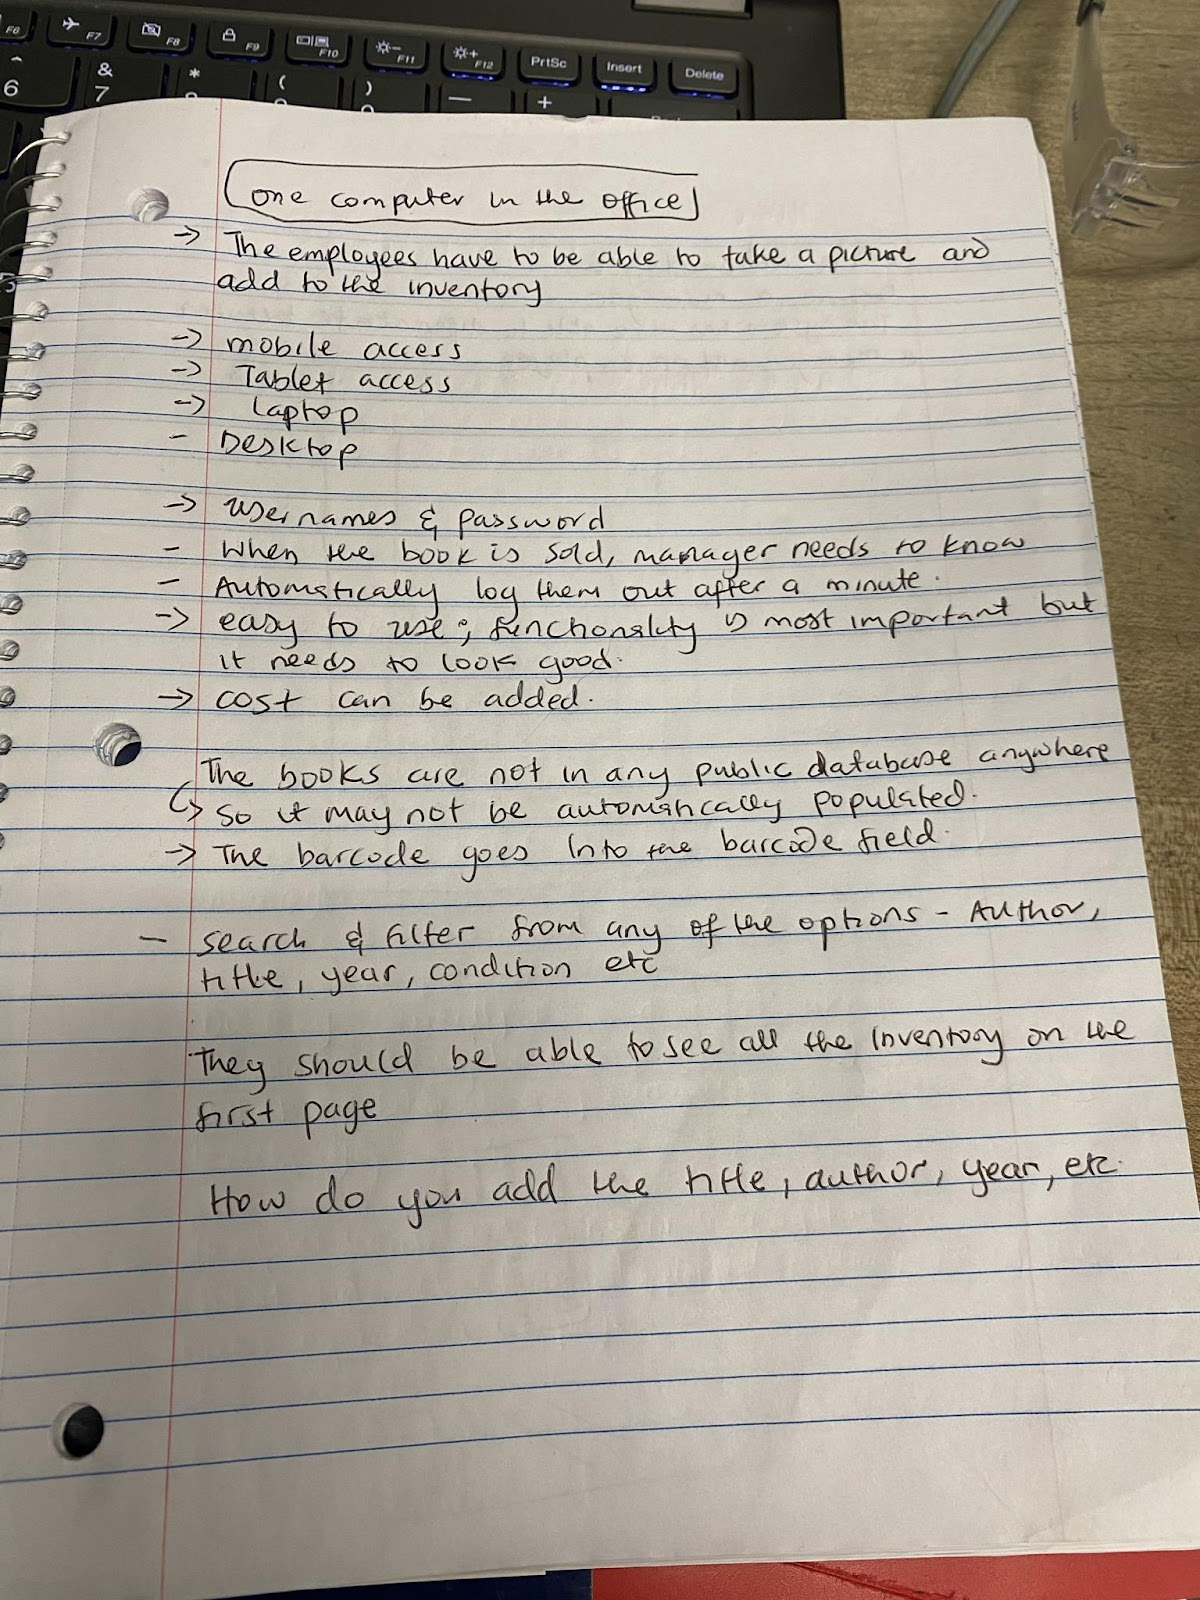 F6 F7 F8 F9 F10 F11 F12 PrtSc Insert Delete
^ & * ( ) — +
6 7
one computer in the office
-> The employees have to be able to take a picture and
add to the inventory
-> mobile access
-> Tablet access
-> Laptop
- Desktop
-> usernames & password
- When the book is sold, manager needs to know
- Automatically log them out after a minute.
-> easy to use; functionality is most important but
it needs to look good.
-> cost can be added.
The books are not in any public database anywhere
-> so it may not be automatically populated.
-> The barcode goes into the barcode field.
- search & filter from any of the options - Author,
title, year, condition etc
They should be able to see all the inventory on the
first page
How do you add the title, author, year, etc.